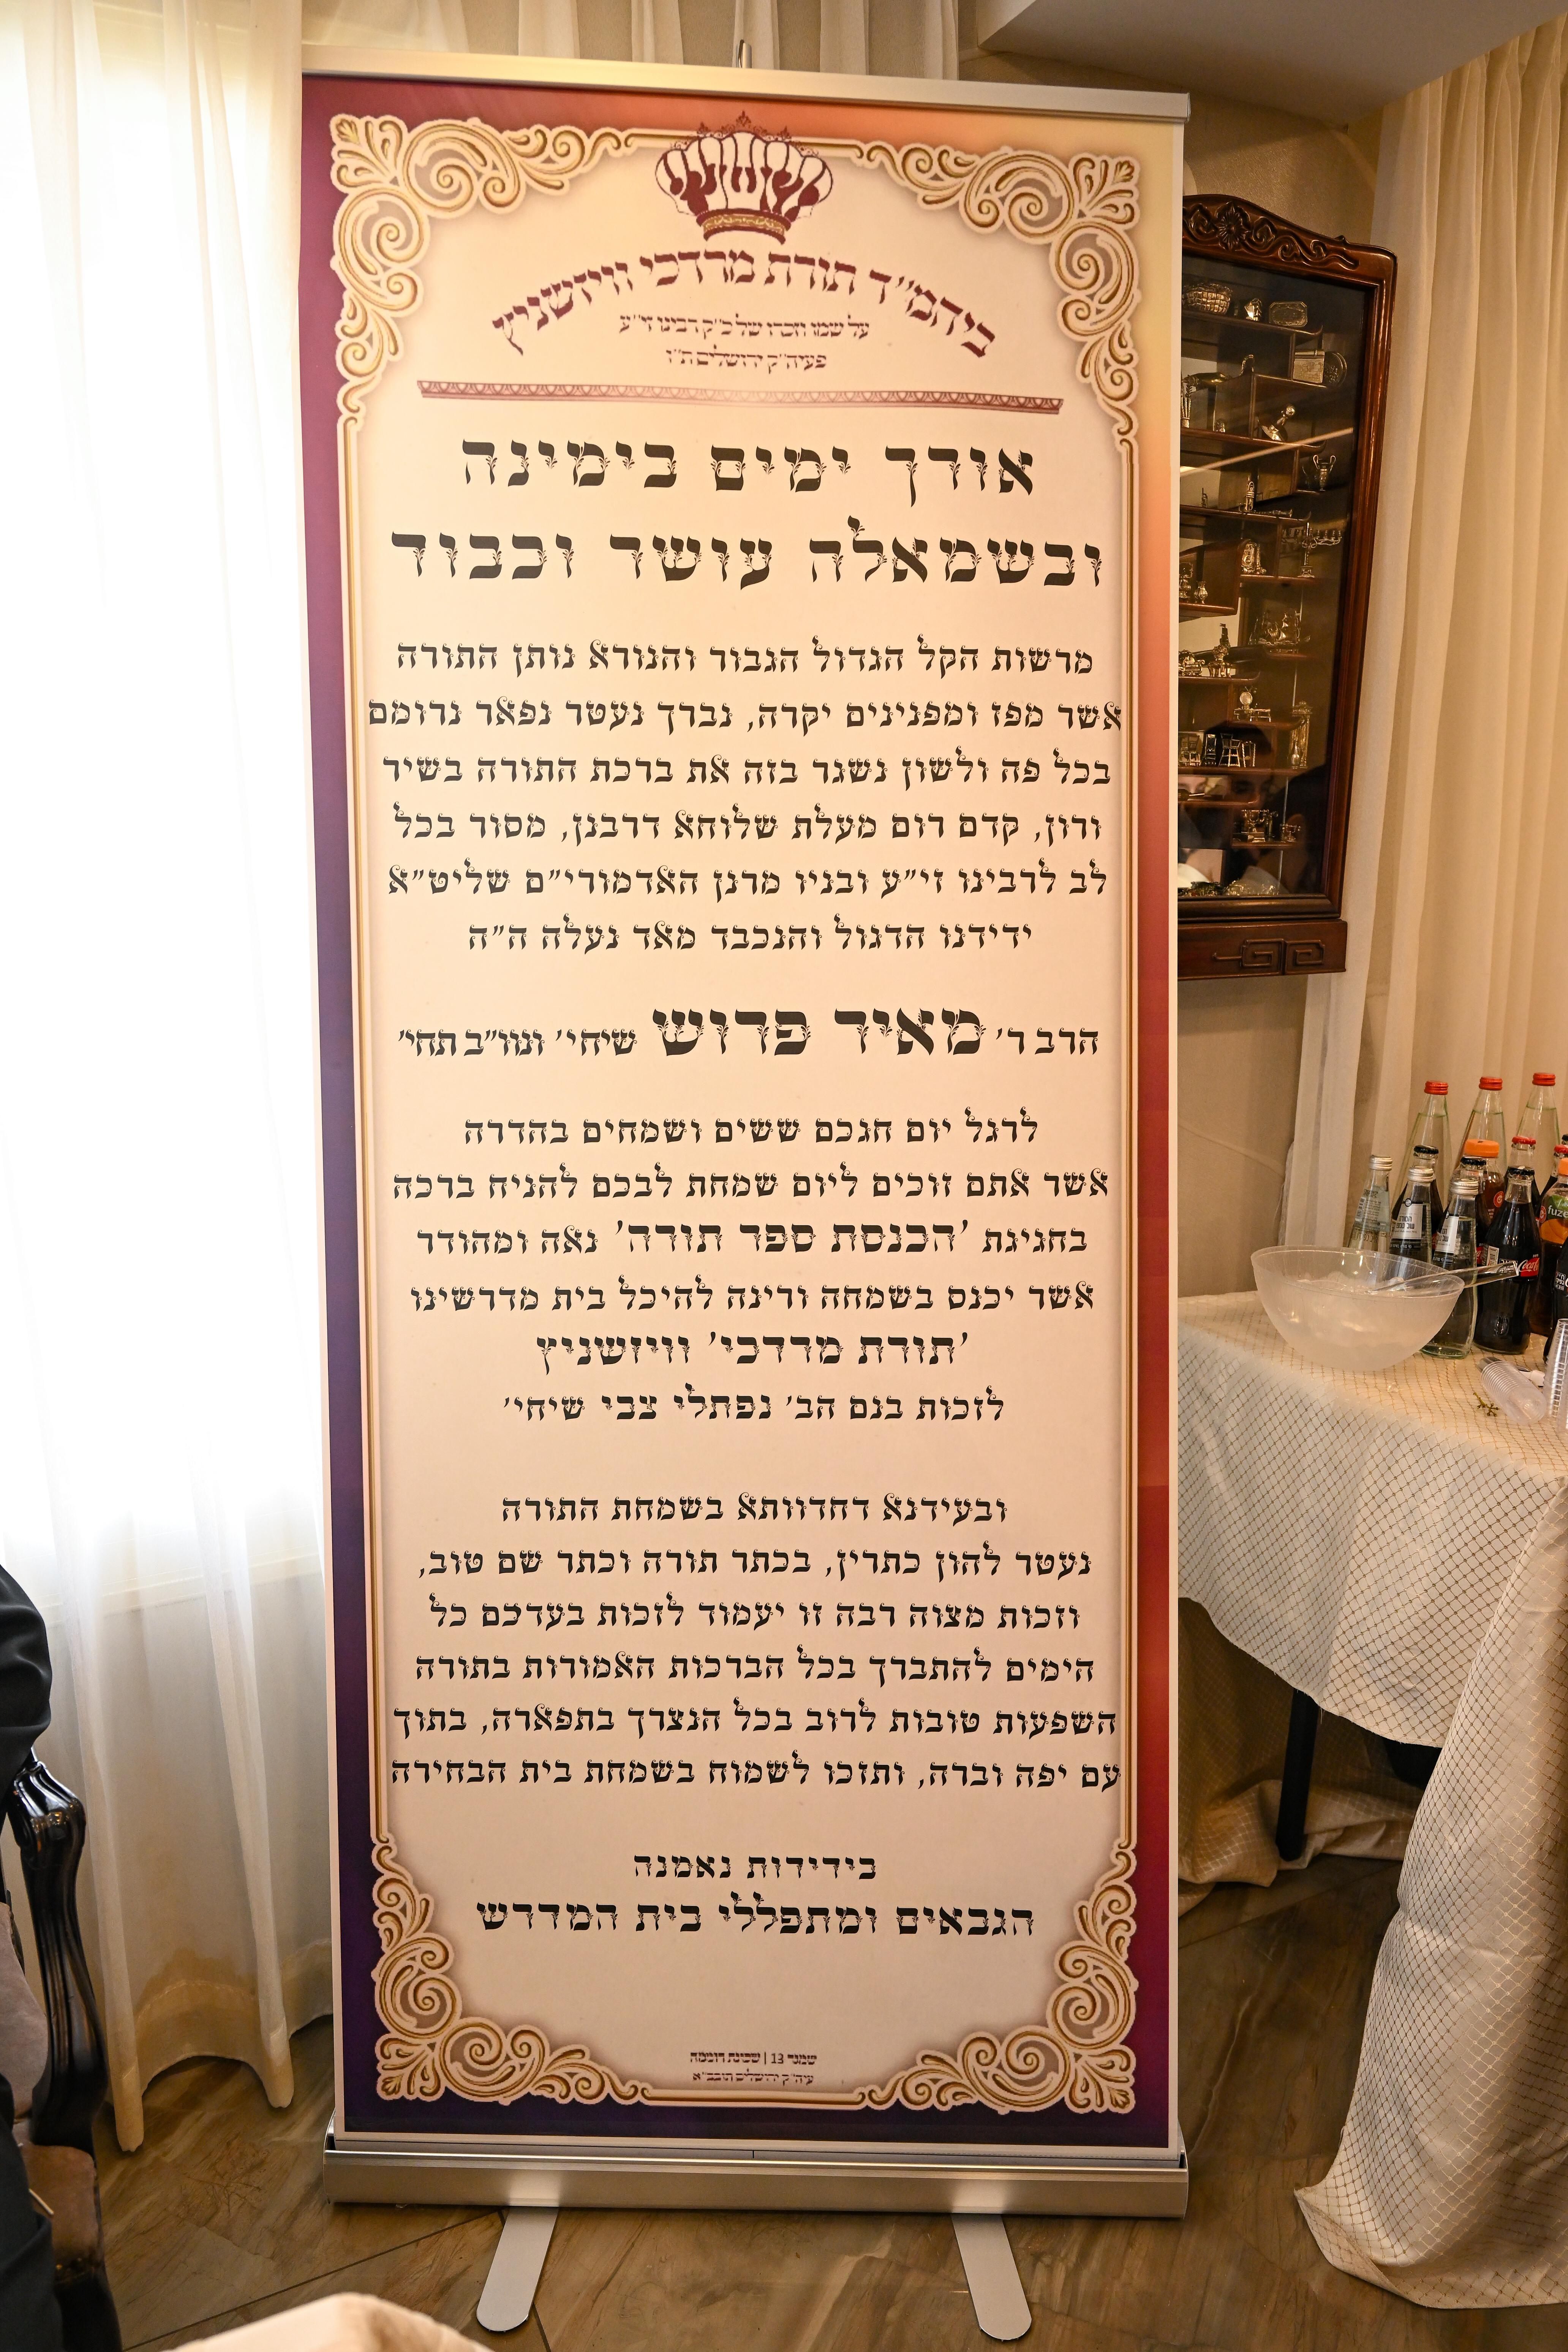 ויזשניץ
ביהמ"ד תורת מרדכי וויזשניץ
על שמו וזכרו של כ"ק רבינו זי"ע
פעיה"ק ירושלים ת"ו
אורך ימים בימינה
ובשמאלה עושר וכבוד
מרשות הקל הגדול הגבור והנורא נותן התורה
אשר מפז ומפנינים יקרה, נברך נעטר נפאר נרומם
בכל פה ולשון נשגר בזה את ברכת התורה בשיר
ורון, קדם רום מעלת שלוחא דרבנן, מסור בכל
לב לרבינו זי"ע ובניו מרנן האדמורי"ם שליט"א
ידידנו הדגול והנכבד מאד נעלה ה"ה
הרב ר' מאיר פרוש שיחי' ונוו"ב תחי'
לרגל יום חגכם ששים ושמחים בהדרה
אשר אתם זוכים ליום שמחת לבכם להניח ברכה
בחגיגת 'הכנסת ספר תורה' נאה ומהודר
אשר יכנס בשמחה ורינה להיכל בית מדרשינו
'תורת מרדכי' וויזשניץ
לזכות בנם הב' נפתלי צבי שיחי'
ובעידנא דחדוותא בשמחת התורה
נעטר להון כתרין, בכתר תורה וכתר שם טוב,
וזכות מצוה רבה זו יעמוד לזכות בעדכם כל
הימים להתברך בכל הברכות האמורות בתורה
השפעות טובות לרוב בכל הנצרך בתפארה, בתוך
עם יפה וברה, ותזכו לשמוח בשמחת בית הבחירה
בידידות נאמנה
הגבאים ומתפללי בית המדרש
שמגר 13 | שכונת רוממה
עיה"ק ירושלים תובב"א
fuze